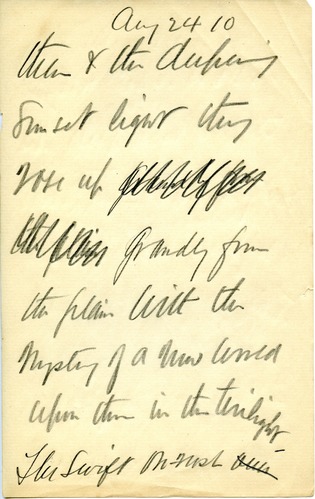 Aug 24 10
them & the deepening
Sunset light they
rose up
grandly from
the plain with the
mystery of a new world
upon them in the twilight
The Swift on rush